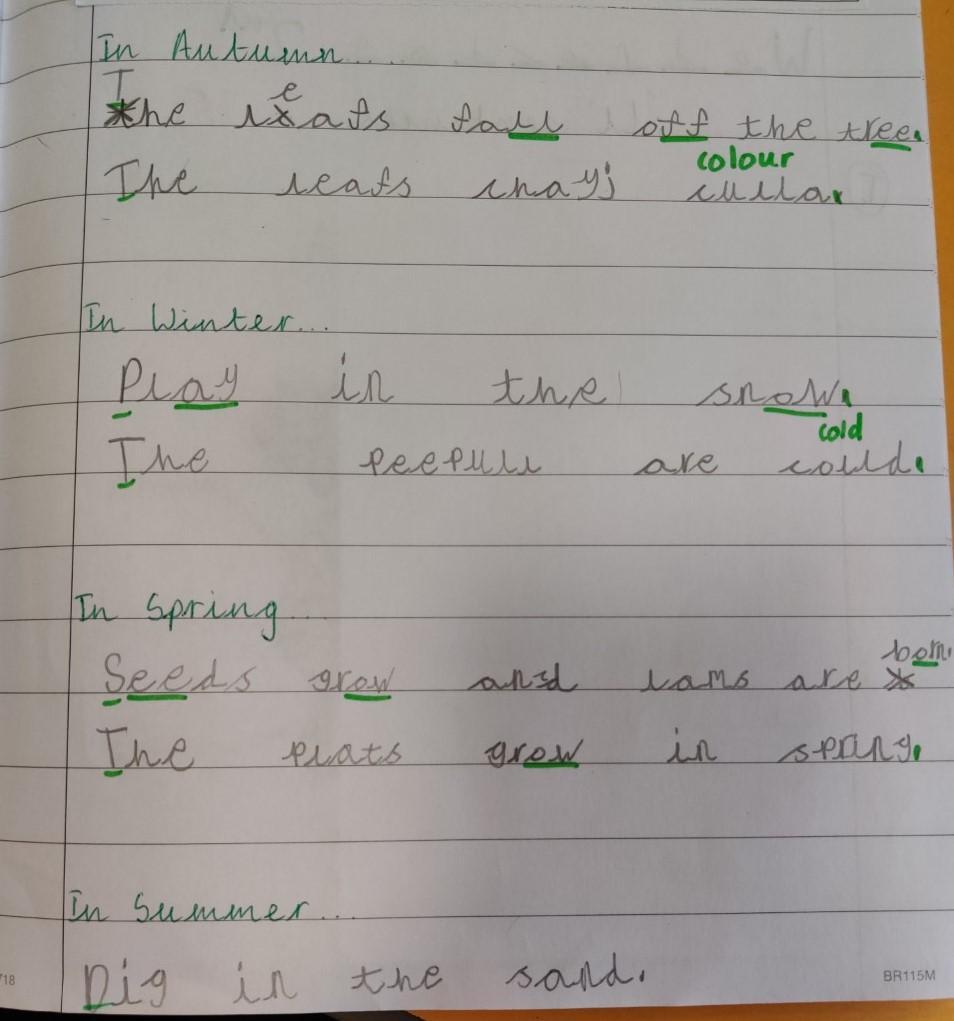 In Autumn......
The leafs fall off the tree.
colour
The leafs chayj culla.
In Winter...
Play in the snow.
cold
The peepull are could.
In Spring...
born.
Seeds grow and lams are
The plats grow in spring.
In Summer...
Dig in the sand.
718
BR115M